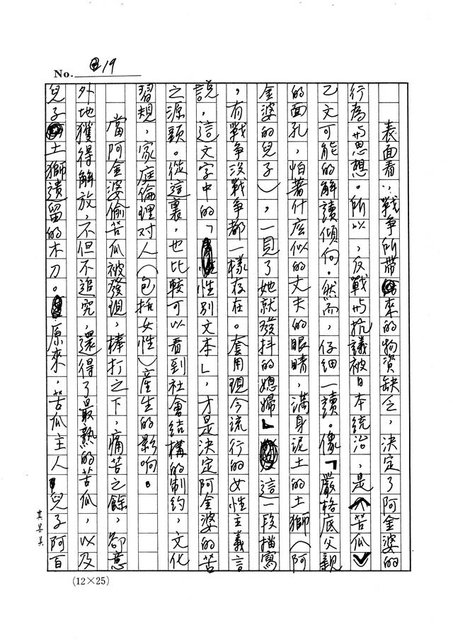 No. 19
表面看,戰爭所帶來的物資缺乏,決定了阿金婆的
行為與思想。所以,反戰與抗議被日本統治,是《苦瓜》
乙文可能的解讀傾向。然而,仔細一讀。像「嚴格底父親
的面孔,怕著什底似的丈夫的眼睛,滿身泥土的土獅(阿
金婆的兒子),一見了她就發抖的媳婦」這一段描寫
,有戰爭沒戰爭都一樣存在。套用現今流行的女性主義言
說,這文字中的「性別文本」,才是決定阿金婆的苦
之源頭。從這裏,也比較可以看到社會結構的制約,文化
習規,家庭倫理對人(包括女性)產生的影响。
當阿金婆偷苦瓜被發現,棒打之下,痛苦之餘,卻意
外地獲得解放,不但不追究,還得了最熟的苦瓜,以及
兒子土獅遺留的木刀。原來,苦瓜主人兒子阿百
(12×25)